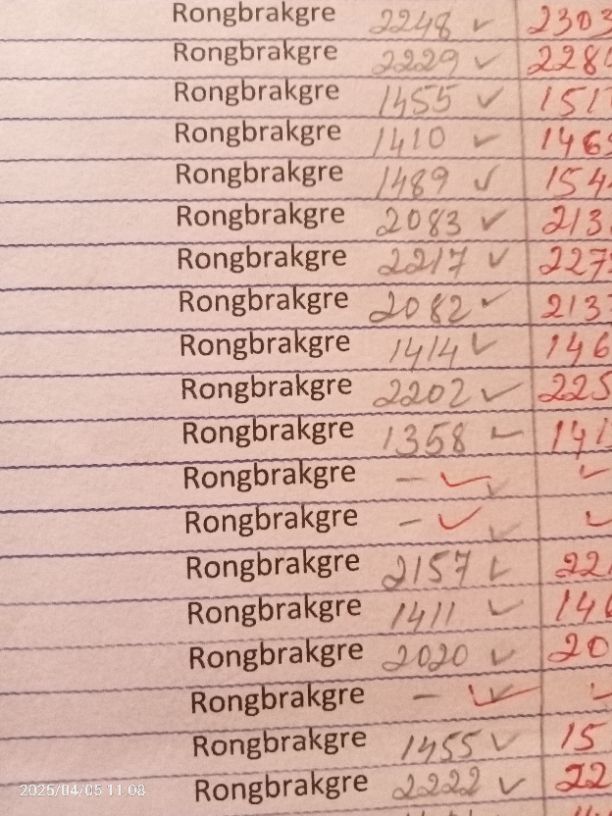 Rongbrakgre 2248 ✓ 2303
Rongbrakgre 2229 ✓ 228
Rongbrakgre 1455 ✓ 151
Rongbrakgre 1410 ✓ 146
Rongbrakgre 1489 ✓ 154
Rongbrakgre 2083 ✓ 213
Rongbrakgre 2217 ✓ 227
Rongbrakgre 2082 ✓ 213
Rongbrakgre 1414 ✓ 146
Rongbrakgre 2202 ✓ 225
Rongbrakgre 1358 ✓ 141
Rongbrakgre – ✓ ✓ ✓
Rongbrakgre – ✓ ✓ ✓
Rongbrakgre 2157 ✓ 22
Rongbrakgre 1411 ✓ 14
Rongbrakgre 2020 ✓ 20
Rongbrakgre – ✓ ✓ ✓
Rongbrakgre 1455 ✓ 15
Rongbrakgre 2222 ✓ 22
2025/04/05 11:08